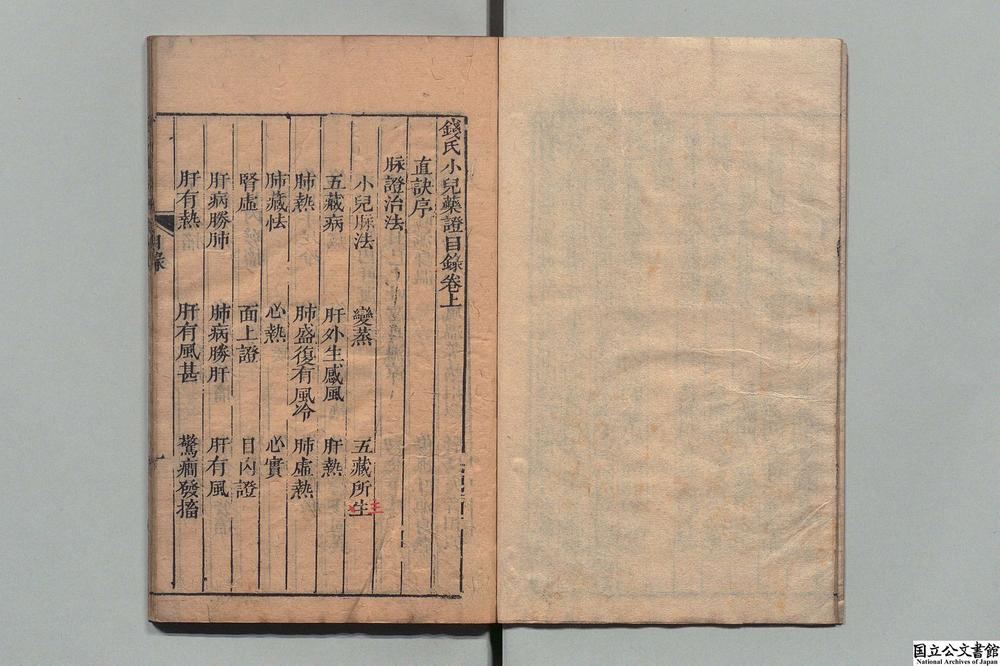 錢氏小兒藥證目錄卷上
直訣序
脉證治法
小兒脉法 變蒸 五藏所生
主
五藏病 肝外生感風 肝熱
肺熱 肺盛復有風冷 肺虛熱
肺藏怯 心熱 心實
腎虛 面上證 目內證
肝病勝肺 肺病勝肝 肝有風
肝有熱 肝有風甚 驚癎發搐
目錄
一
国立公文書館
National Archives of Japan